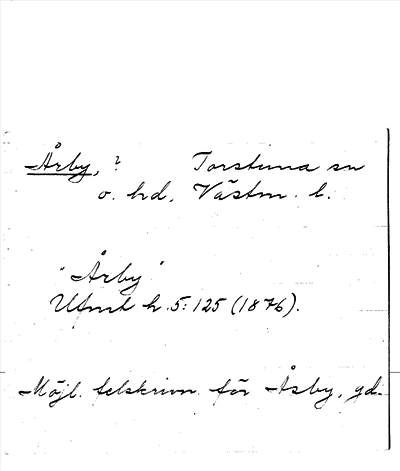 Årby, ? Torstuna sn
o. hd, Västm. l.
"Årby"
Ufmt h. 5:125 (1876).
Möjl. felskrivn. för Åsby, gd.